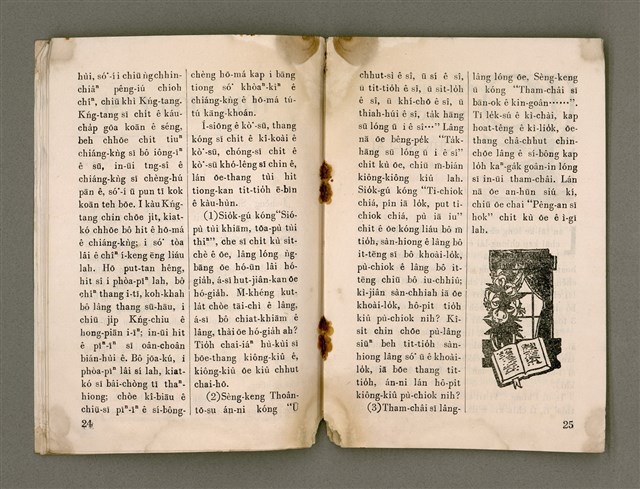 húi, só͘-í i chiū n̂g chhin-
chiâⁿ pêng-iú chioh
chîⁿ, chiū khì Kńg-tang
Kńg-tang sī chi̍t ê káu-
cha̍p góa koān ê séng,
beh chhōe chi̍t tiuⁿ
chiáng-kǹg sī bô iông-īⁿ
ê sū, in-ūi tng-sî ê
chiáng-kǹg sī chèng-hú
pān ê, só͘-í ū pun tī kok
koān teh bōe. I kàu Kńg-
tang chin chōe ji̍t, kiat-
kó chhōe bô hit ê hō-má
ê chiáng-kǹg; i só͘ tòa
lâi ê chîⁿ í-keng ēng liáu
lah. Hō put-tan hêng,
hit sî i phòa-pīⁿ lah, bô
chîⁿ thang ī-tī, koh-khah
bô lâng thang sū-hāu, i
chiū ji̍p Kńg-chiu ê
hong-piān ī-īⁿ; in-ūi hit
ê pīⁿ-īⁿ sī oân-choân
biān-hùi ê. Bô jōa-kú, i
phòa-pīⁿ lâi sí lah, kiat-
kó sī bâi-chòng tī thaⁿ-
hiong; chòe kî-biāu ê
chiū-sī pīⁿ-īⁿ ê sí-bông-
24
chèng hō-má kap i bāng
tiong só͘ khòaⁿ-kìⁿ ê
chiáng-kǹg ê hō-má tú-
tú kāng-khoán.
Í-siōng ê kò͘-sū, thang
kóng sī chi̍t ê kì-koài ê
kò͘-sū, chóng-sī chi̍t ê
kò͘-sū khó-lêng sī chin ê,
lán ōe-thang tùi hit
tiong-kan tit-tio̍h ē-bīn
ê kàu-hùn.
(1)Sio̍k-gú kóng"Sió-
pù tùi khiām, tōa-pù tùi
thiⁿ", che sī chi̍t kù si̍t-
chè ê ōe, lâng lóng ǹg-
bāng ōe hó-ūn lâi hó-
gia̍h, á-sī hut-jiân-kan ōe
hó-gia̍h. M̄-khéng kut-
la̍t chòe tāi-chì ê lâng,
á-sī bô chiat-khiām ê
lâng, thài ōe hó-gia̍h ah?
Tio̍h chai-iáⁿ hù-kùi sī
bōe-thang kiông-kiû ê,
kiông-kiû ōe kiû chhut
chai-hō.
(2)Sèng-keng Thoân-
tō-su án-ni kóng "Ū
chhut-sì ê sî, ū sí ê sî,
ū tit-tio̍h ê sî, ū sit-lo̍h
ê sî, ū khí-chō ê sî, ū
thiah-húi ê sî, ta̍k hāng
sū lóng ū i ê sî···" Lâng
nā ōe bêng-pe̍k "Ta̍k-
hāng sū lóng ū i ê sî"
chi̍t kù ōe, chiū m̄-bián
kiông-kiông kiû lah.
Sio̍k-gú kóng "Ti-chiok
chiá, pîn iā lo̍k, put ti-
chiok chiá, pù iā iu"
chi̍t ê ōe kóng liáu bô m̄
tio̍h, sàn-hiong ê lâng bô
it-tēng sī bô khoài-lo̍k,
pù-chiok ê lâng bô it-
tēng chiū bô iu-chhiû;
kì-jiân sàn-chhiah iā ōe
khoài-lo̍k, hô-pit tio̍h
pù-chiok nih? Ki-
sit chin chōe pù-lâng
siūⁿ beh tit-tio̍h sàn-
hiong lâng só͘ ū ê khoài-
lo̍k, iā bōe thang tit-
tio̍h, án-ni lán hô-pit
kiông-kiû pù-chiok nih?
(3)Tham-châi sī lâng-
lâng lóng ōe, Sèng-keng
ū kóng "Tham-châi sī
bān-ok ê kin-goân······".
Tī le̍k-sú ê kì-chāi, kap
hoat-tēng ê kì-lio̍k, ōe-
thang chá-chhut chin-
chōe lâng ê sí-bông kap
lo̍h kaⁿ-ga̍k goân-in lóng
sī in-ūi tham-châi. Lán
nā ōe an-hūn siú kí,
chiū ōe chai "Pêng-an sī
hok" chi̍t kù ōe ê ì-gī
lah.
25